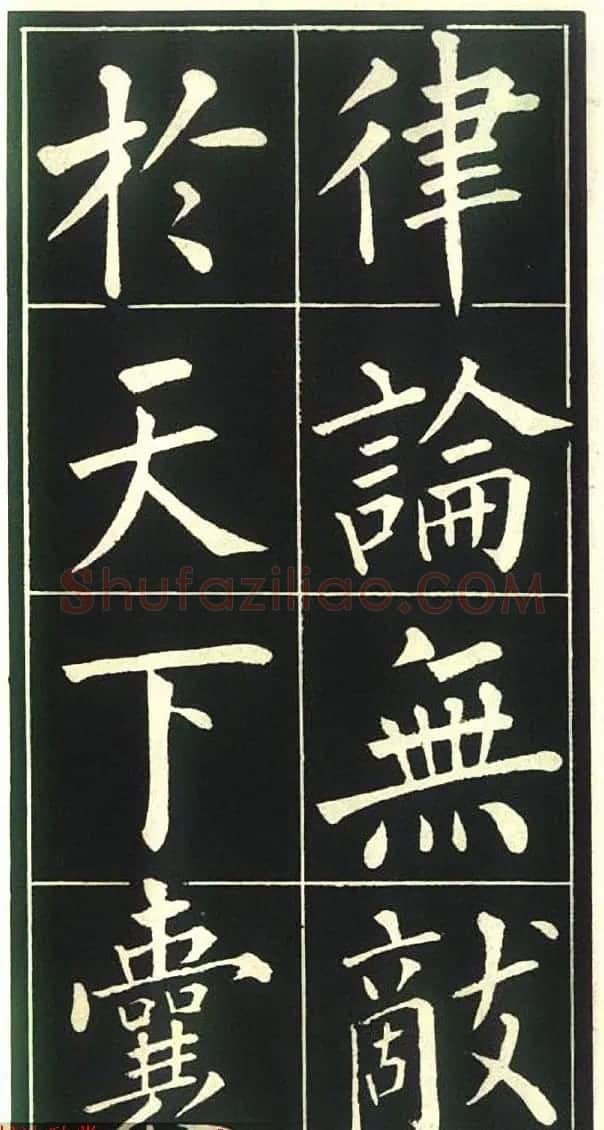 律論無敵
於天下囊
Shufaziliao.COM